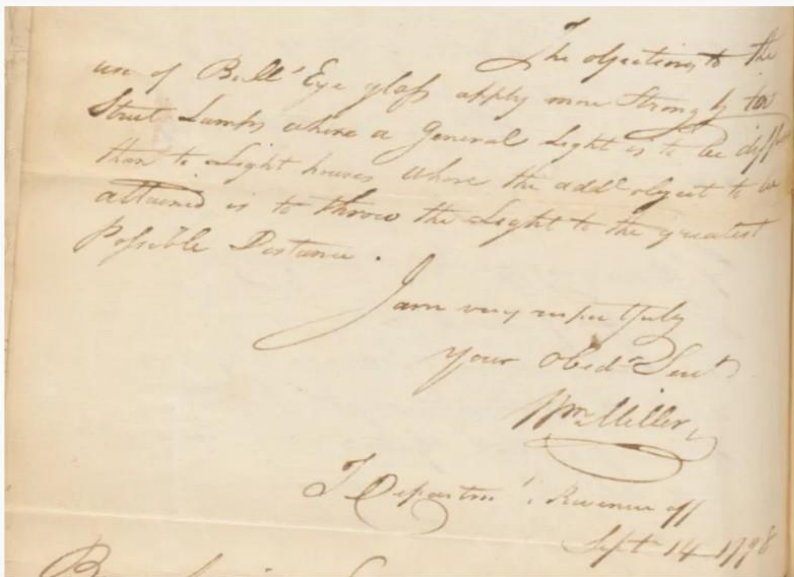 The objections to the
use of Bull's Eye glass apply more strongly to
Street Lamps where a General Light is to be
than to Light houses where the addl object to be
attained is to throw the Light to the greatest
Possible Distance.
I am very respectfully
your Obedt Servt
Wm Miller,
T Departmt. Revenue off
Sept 14 1798